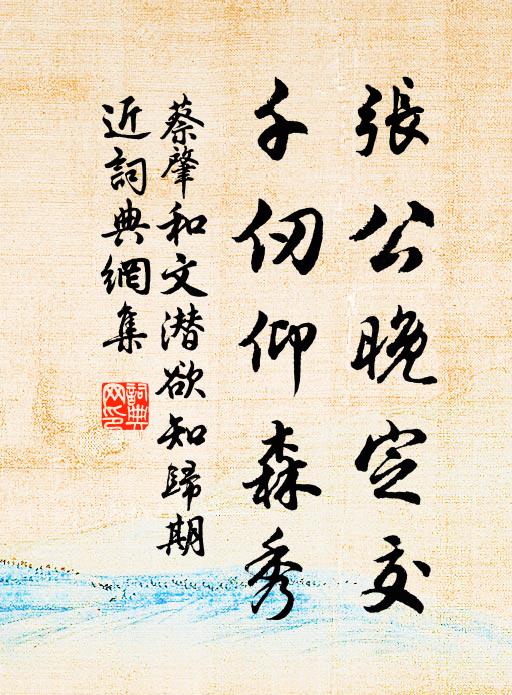 張公晚定交
千仞仰森秀
蔡肇和文潜欲知歸期
近詞典網集
詞典網印